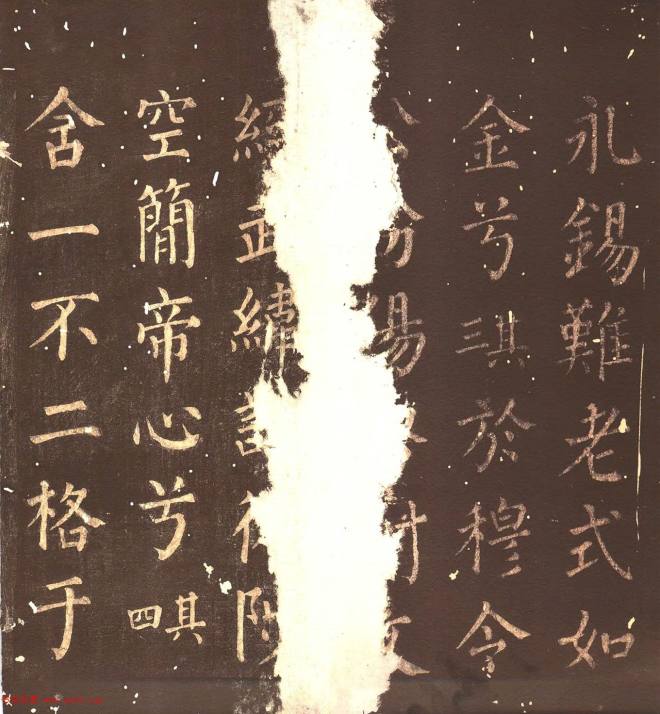 永錫難老式如
金兮其三於穆令
汾陽
經武緯
空簡帝心兮其四
舍一不二格于